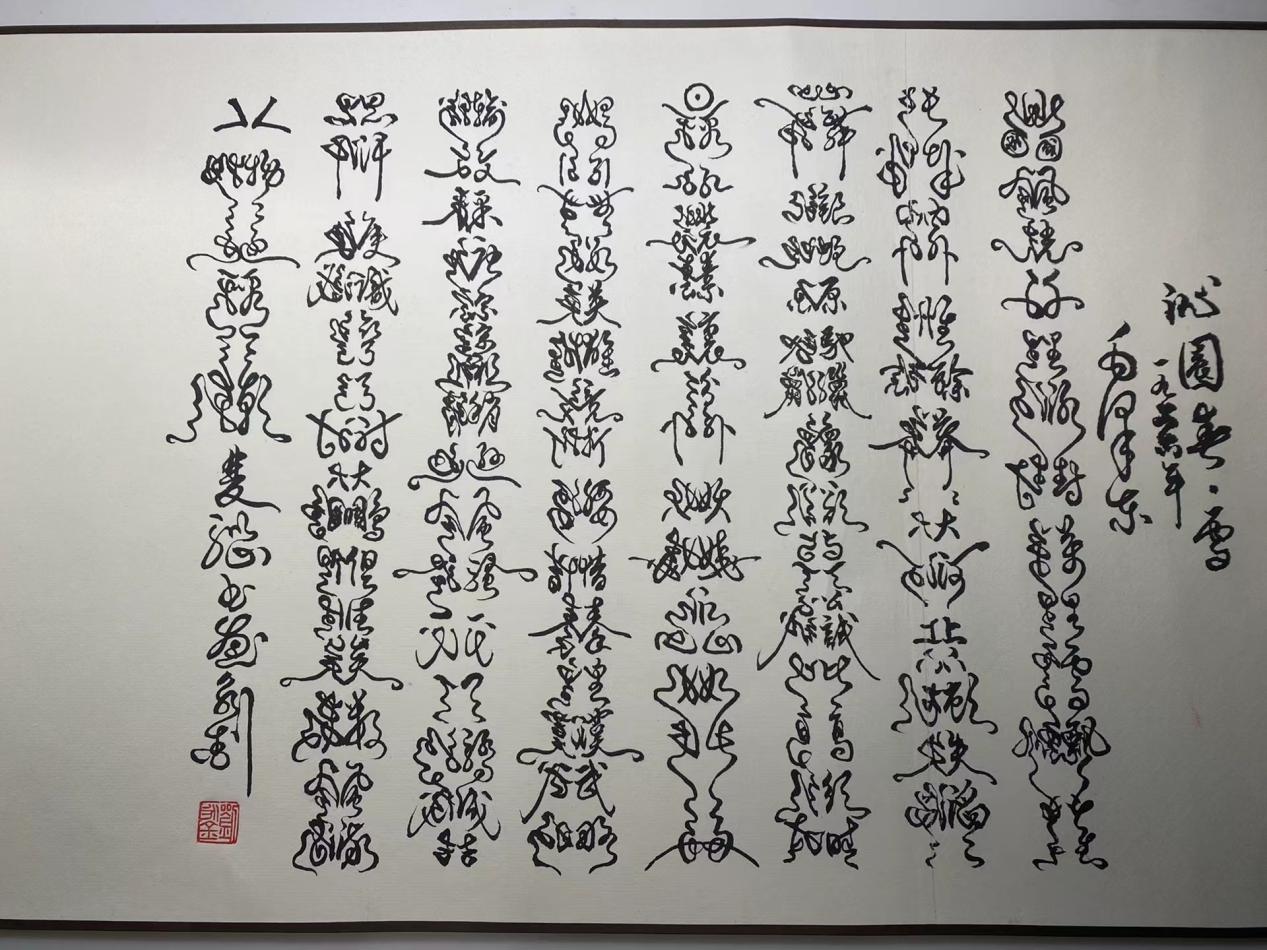 沁園春·雪
一九三六年
毛澤東
北國風光千里冰封萬里雪飄望長
城內外惟餘莽大河上下頓失滔
山舞銀蛇原馳蠟象欲與天公試比高須晴
日看紅裝素裹分外妖嬈江山如此多
嬌引無數英雄競折腰惜秦皇漢武略
輸文採唐宗宋祖稍遜風騷一代天驕成吉
思汗只識彎弓射大鵰俱往矣數風流
人物還看今朝
書畫創